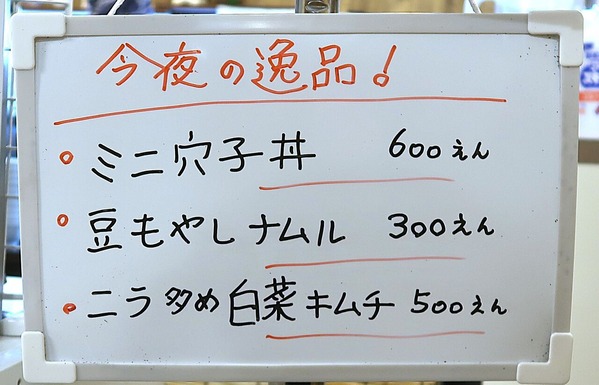 今夜の逸品!
ミニ穴子丼 600えん
豆もやしナムル 300えん
ニラ多め白菜キムチ 500えん